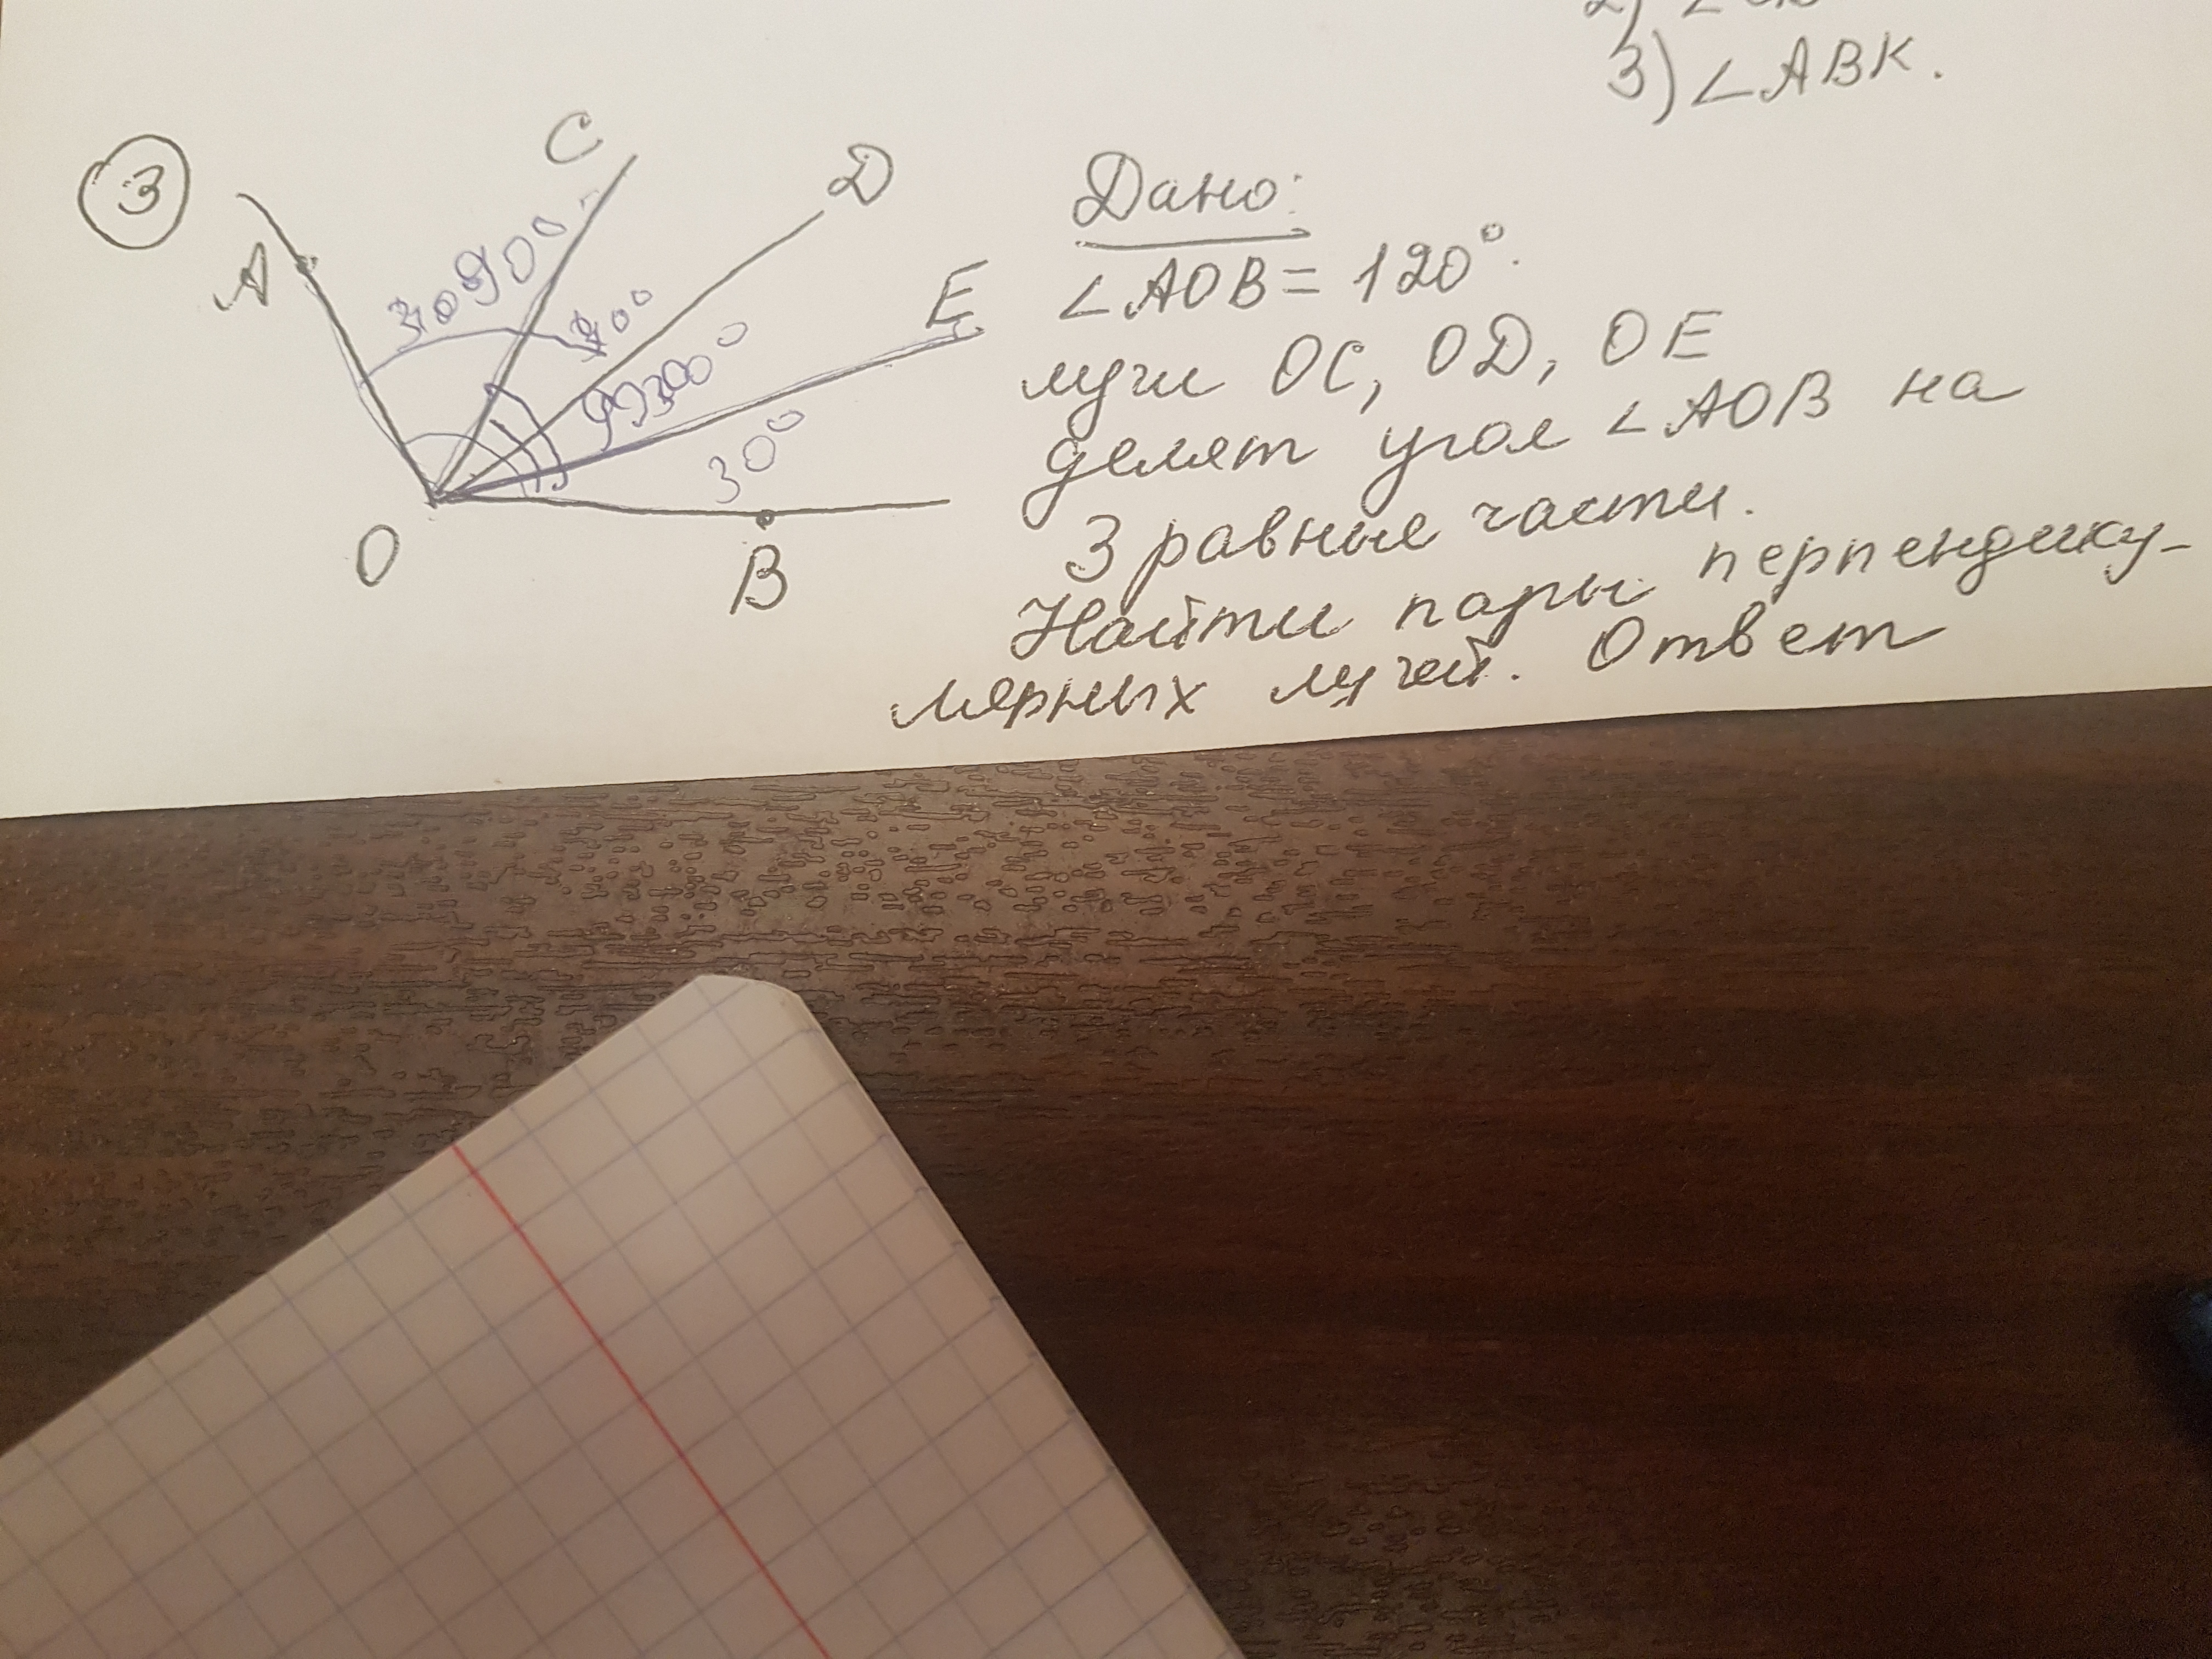 3) ∠ABK.
3
A
C
D
E
O
B
90°
30°
Дано:
∠AOB = 120°.
лучи OC, OD, OE
делят угол ∠AOB на
3 равные части.
Найти пары перпендику-
лярных лучей. Ответ